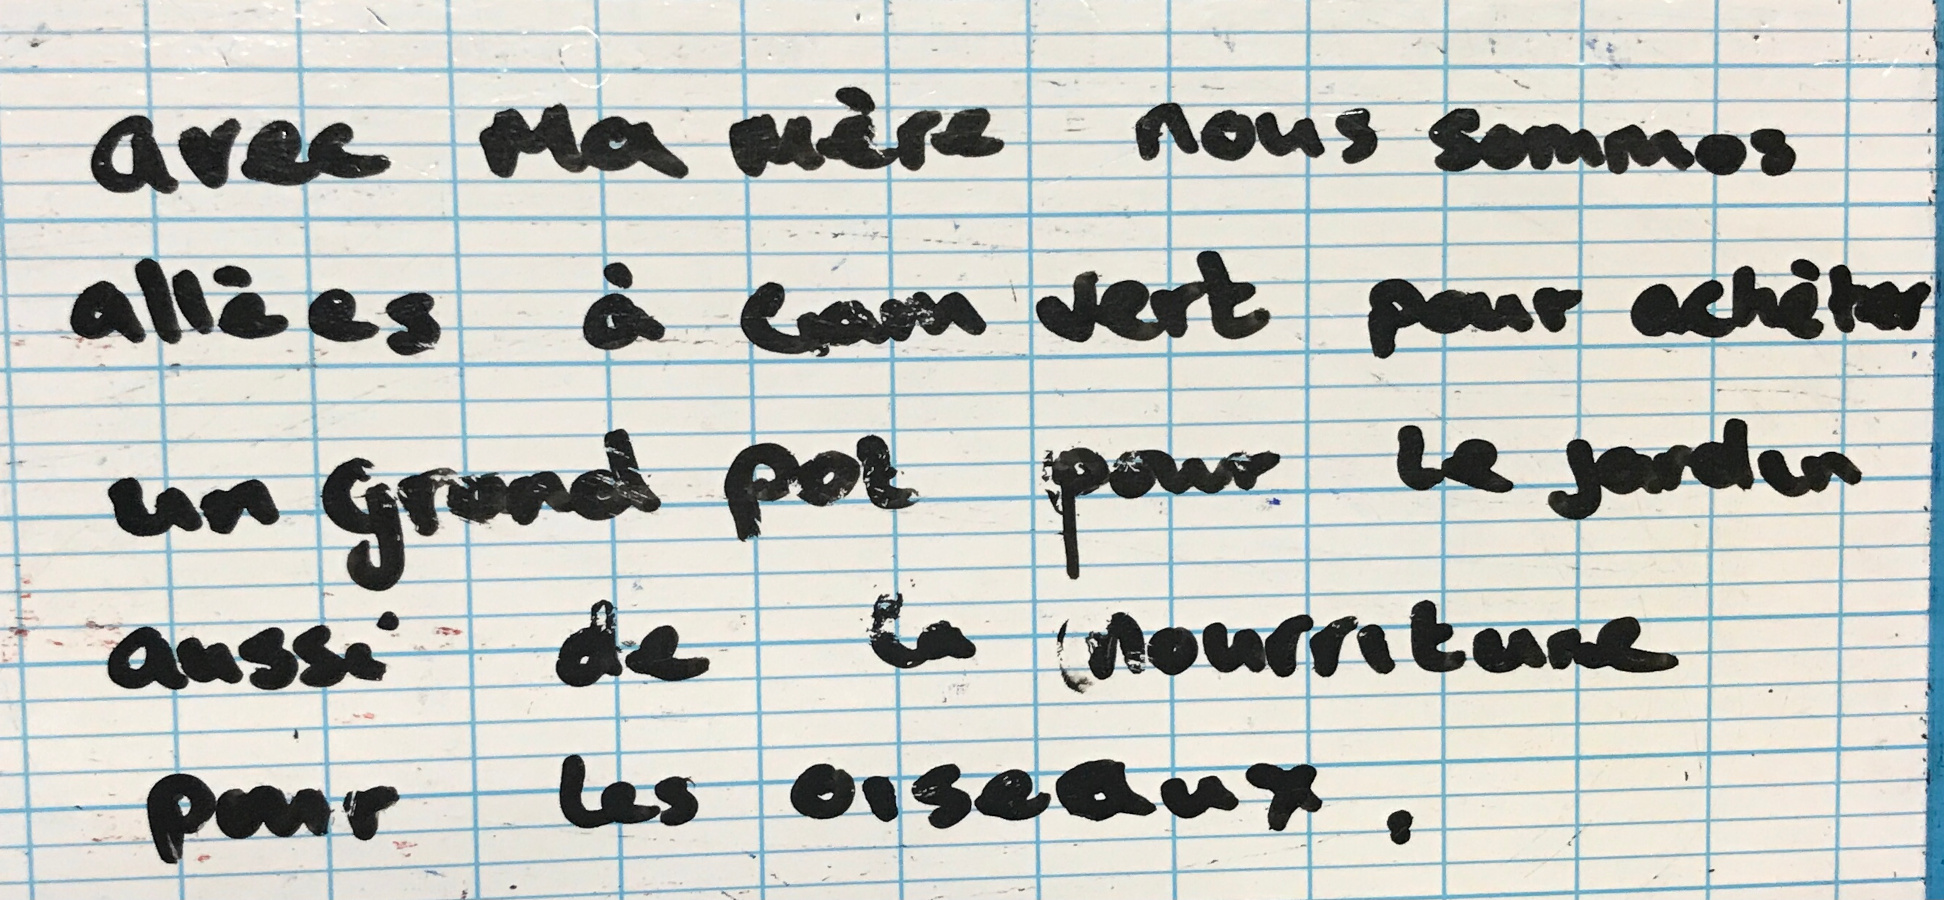 avec Ma mère nous sommes
allées à cam vert pour achèter
un grand pot pour le jardin
aussi de la nourriture
pour les oiseaux.